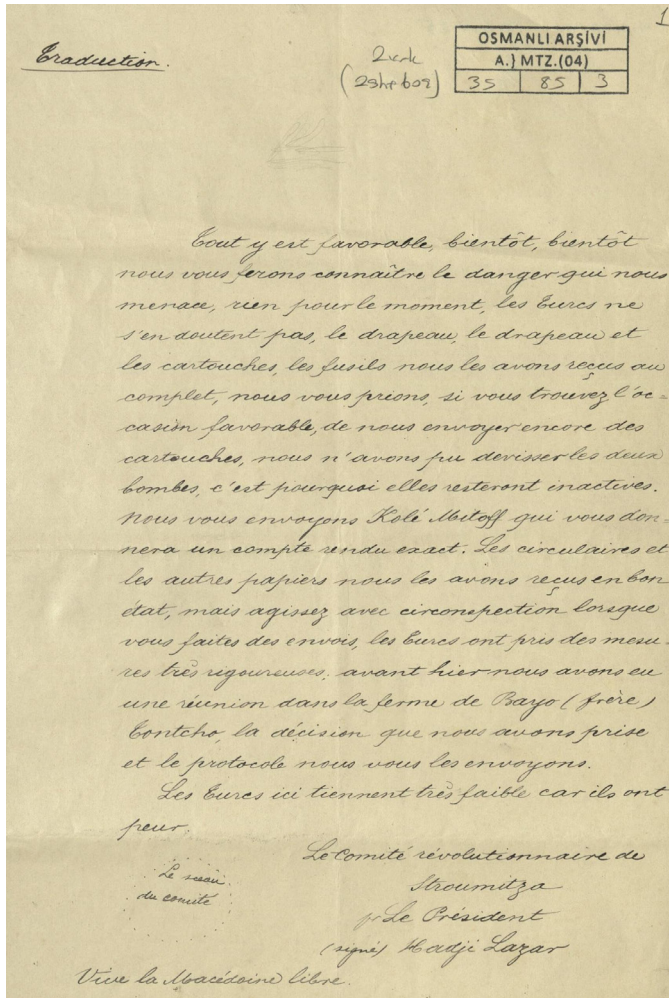 1
Traduction.
OSMANLI ARŞİVİ
A.} MTZ.(04)
35 85 3
Tout y est favorable, bientôt, bientôt
nous vous ferons connaître le danger qui nous
menace, rien pour le moment, les Turcs ne
s'en doutent pas, le drapeau, le drapeau et
les cartouches, les fusils nous les avons reçus au
complet, nous vous prions, si vous trouvez l'oc=
casion favorable, de nous envoyer encore des
cartouches, nous n'avons pu devisser les deux
bombes, c'est pourquoi elles resteront inactives.
Nous vous envoyons Kolé Mitoff qui vous don=
nera un compte rendu exact. Les circulaires et
les autres papiers nous les avons reçus en bon
état, mais agissez avec circonspection lorsque
vous faites des envois, les Turcs ont pris des mesu=
res très rigoureuses, avant hier nous avons eu
une réunion dans la ferme de Bayo (frère)
Tontcho, la décision que nous avons prise
et le protocole nous vous les envoyons.
Les Turcs ici tiennent très faible car ils ont
peur.
Le Comité révolutionnaire de
Stroumitza
pr Le Président
(signé) Hadji Lazar
Le sceau
du comité
Vive la Macédoine libre.